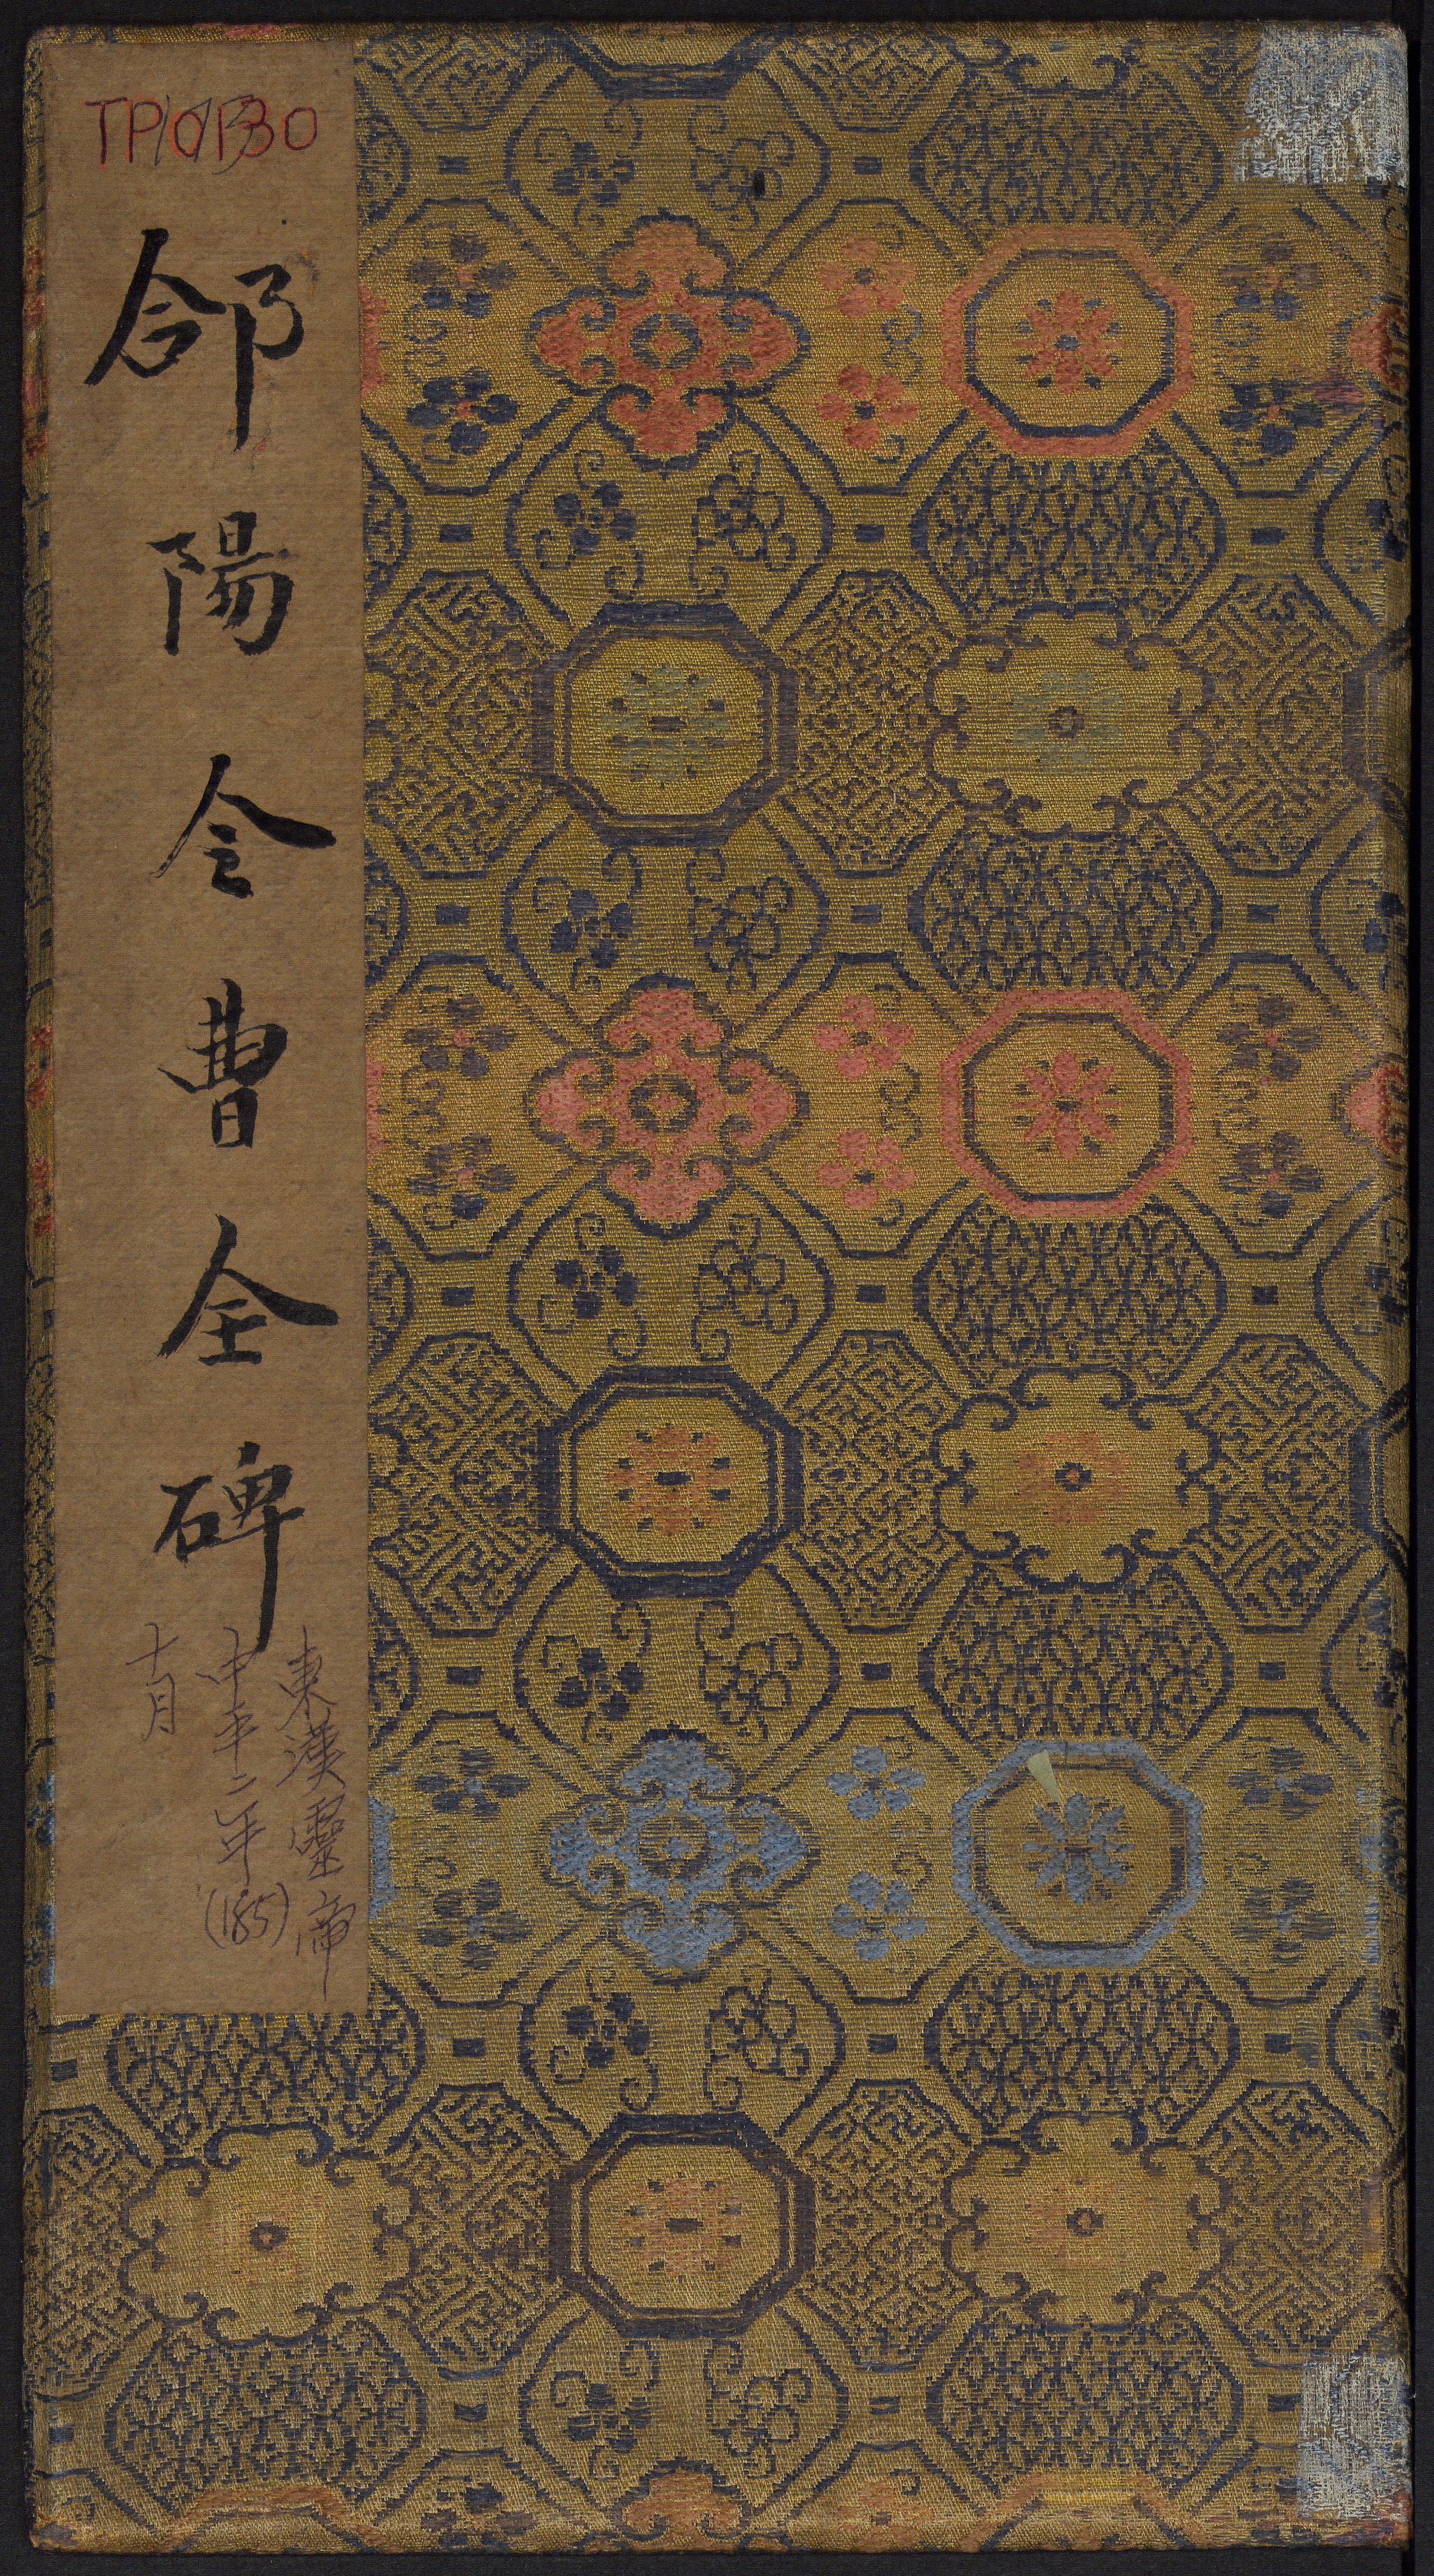 TP10130
郃陽令曹全碑
東漢靈帝
中平二年(185)
十月